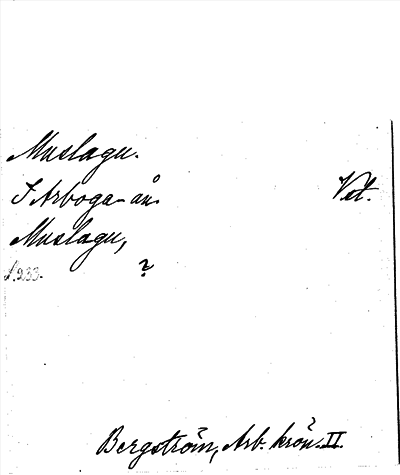 Muslagu.
I Arboga-ån. Vet.
Muslagu,
s. 233. ?
Bergström, Arb. krön. II.